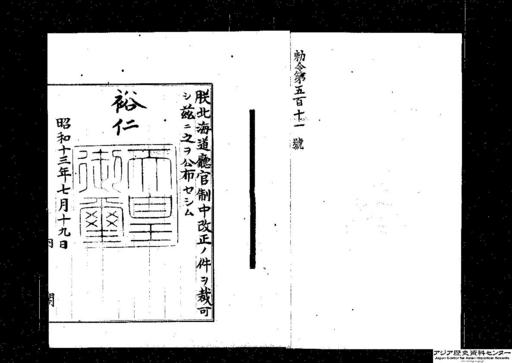 勅令第五百十一號
朕北海道廳官制中改正ノ件ヲ裁可
シ茲ニ之ヲ公布セシム
裕仁
天皇御璽
昭和十三年七月十九日
内閣
アジア歴史資料センター
Japan Center for Asian Historical Records